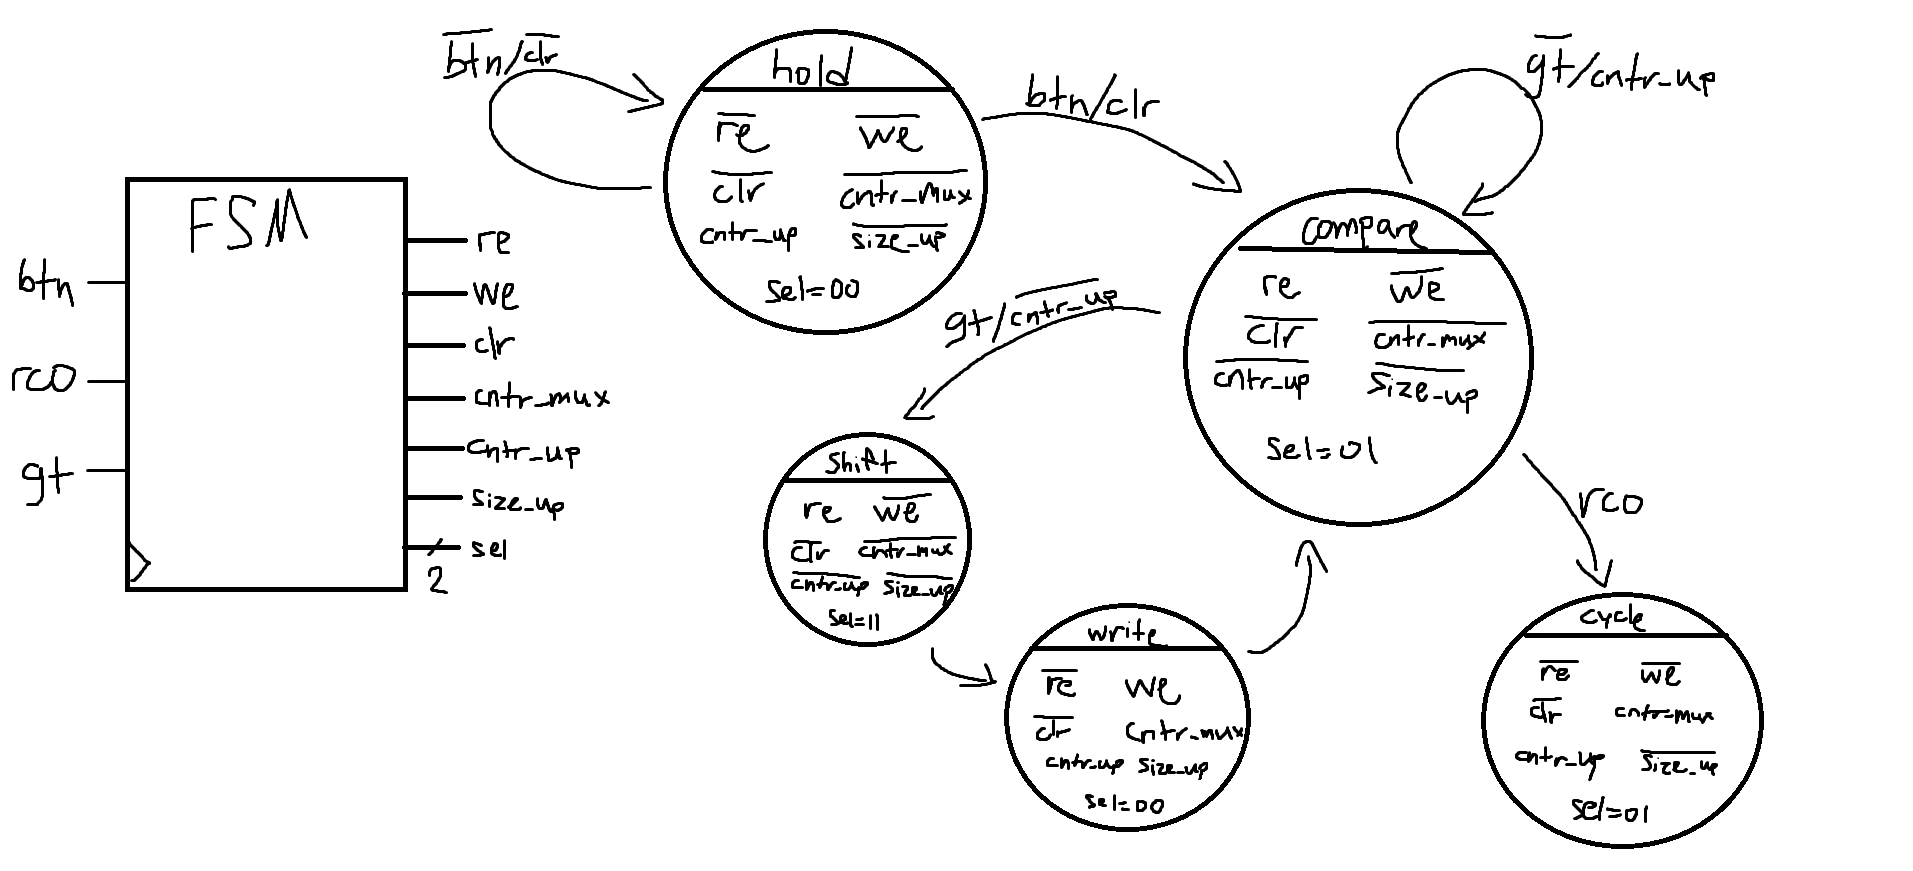 FSM
btn
rco
gt
re
we
clr
cntr_mux
cntr_up
size_up
sel
2
b̅t̅n̅/c̅l̅r̅
hold
r̅e̅ w̅e̅
c̅l̅r̅ c̅n̅t̅r̅_̅m̅u̅x̅
cntr_up s̅i̅z̅e̅_̅u̅p̅
sel=00
btn/clr
g̅t̅/cntr_up
compare
re w̅e̅
c̅l̅r̅ c̅n̅t̅r̅_̅m̅u̅x̅
c̅n̅t̅r̅_̅u̅p̅ s̅i̅z̅e̅_̅u̅p̅
sel=01
gt/c̅n̅t̅r̅_̅u̅p̅
shift
re w̅e̅
c̅l̅r̅ c̅n̅t̅r̅_̅m̅u̅x̅
c̅n̅t̅r̅_̅u̅p̅ s̅i̅z̅e̅_̅u̅p̅
sel=11
write
r̅e̅ we
c̅l̅r̅ cntr_mux
cntr_up size_up
sel=00
rco
cycle
r̅e̅ w̅e̅
c̅l̅r̅ cntr_mux
cntr_up s̅i̅z̅e̅_̅u̅p̅
sel=01